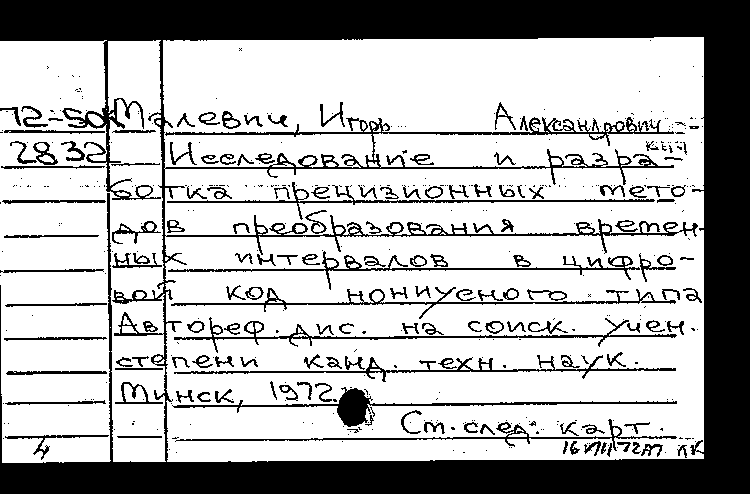 72-50К Малевич, Игорь Александрович
2832 Исследование и разра-
ботка прецизионных мето-
дов преобразования времен-
ных интервалов в цифро-
вой код нониусного типа
Автореф. дис. на соиск. учен.
степени канд. техн. наук.
Минск, 1972
См. след. карт.
4